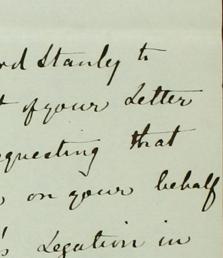 rd Stanley to
t of your Letter
equesting that
on your behalf
's Legation in